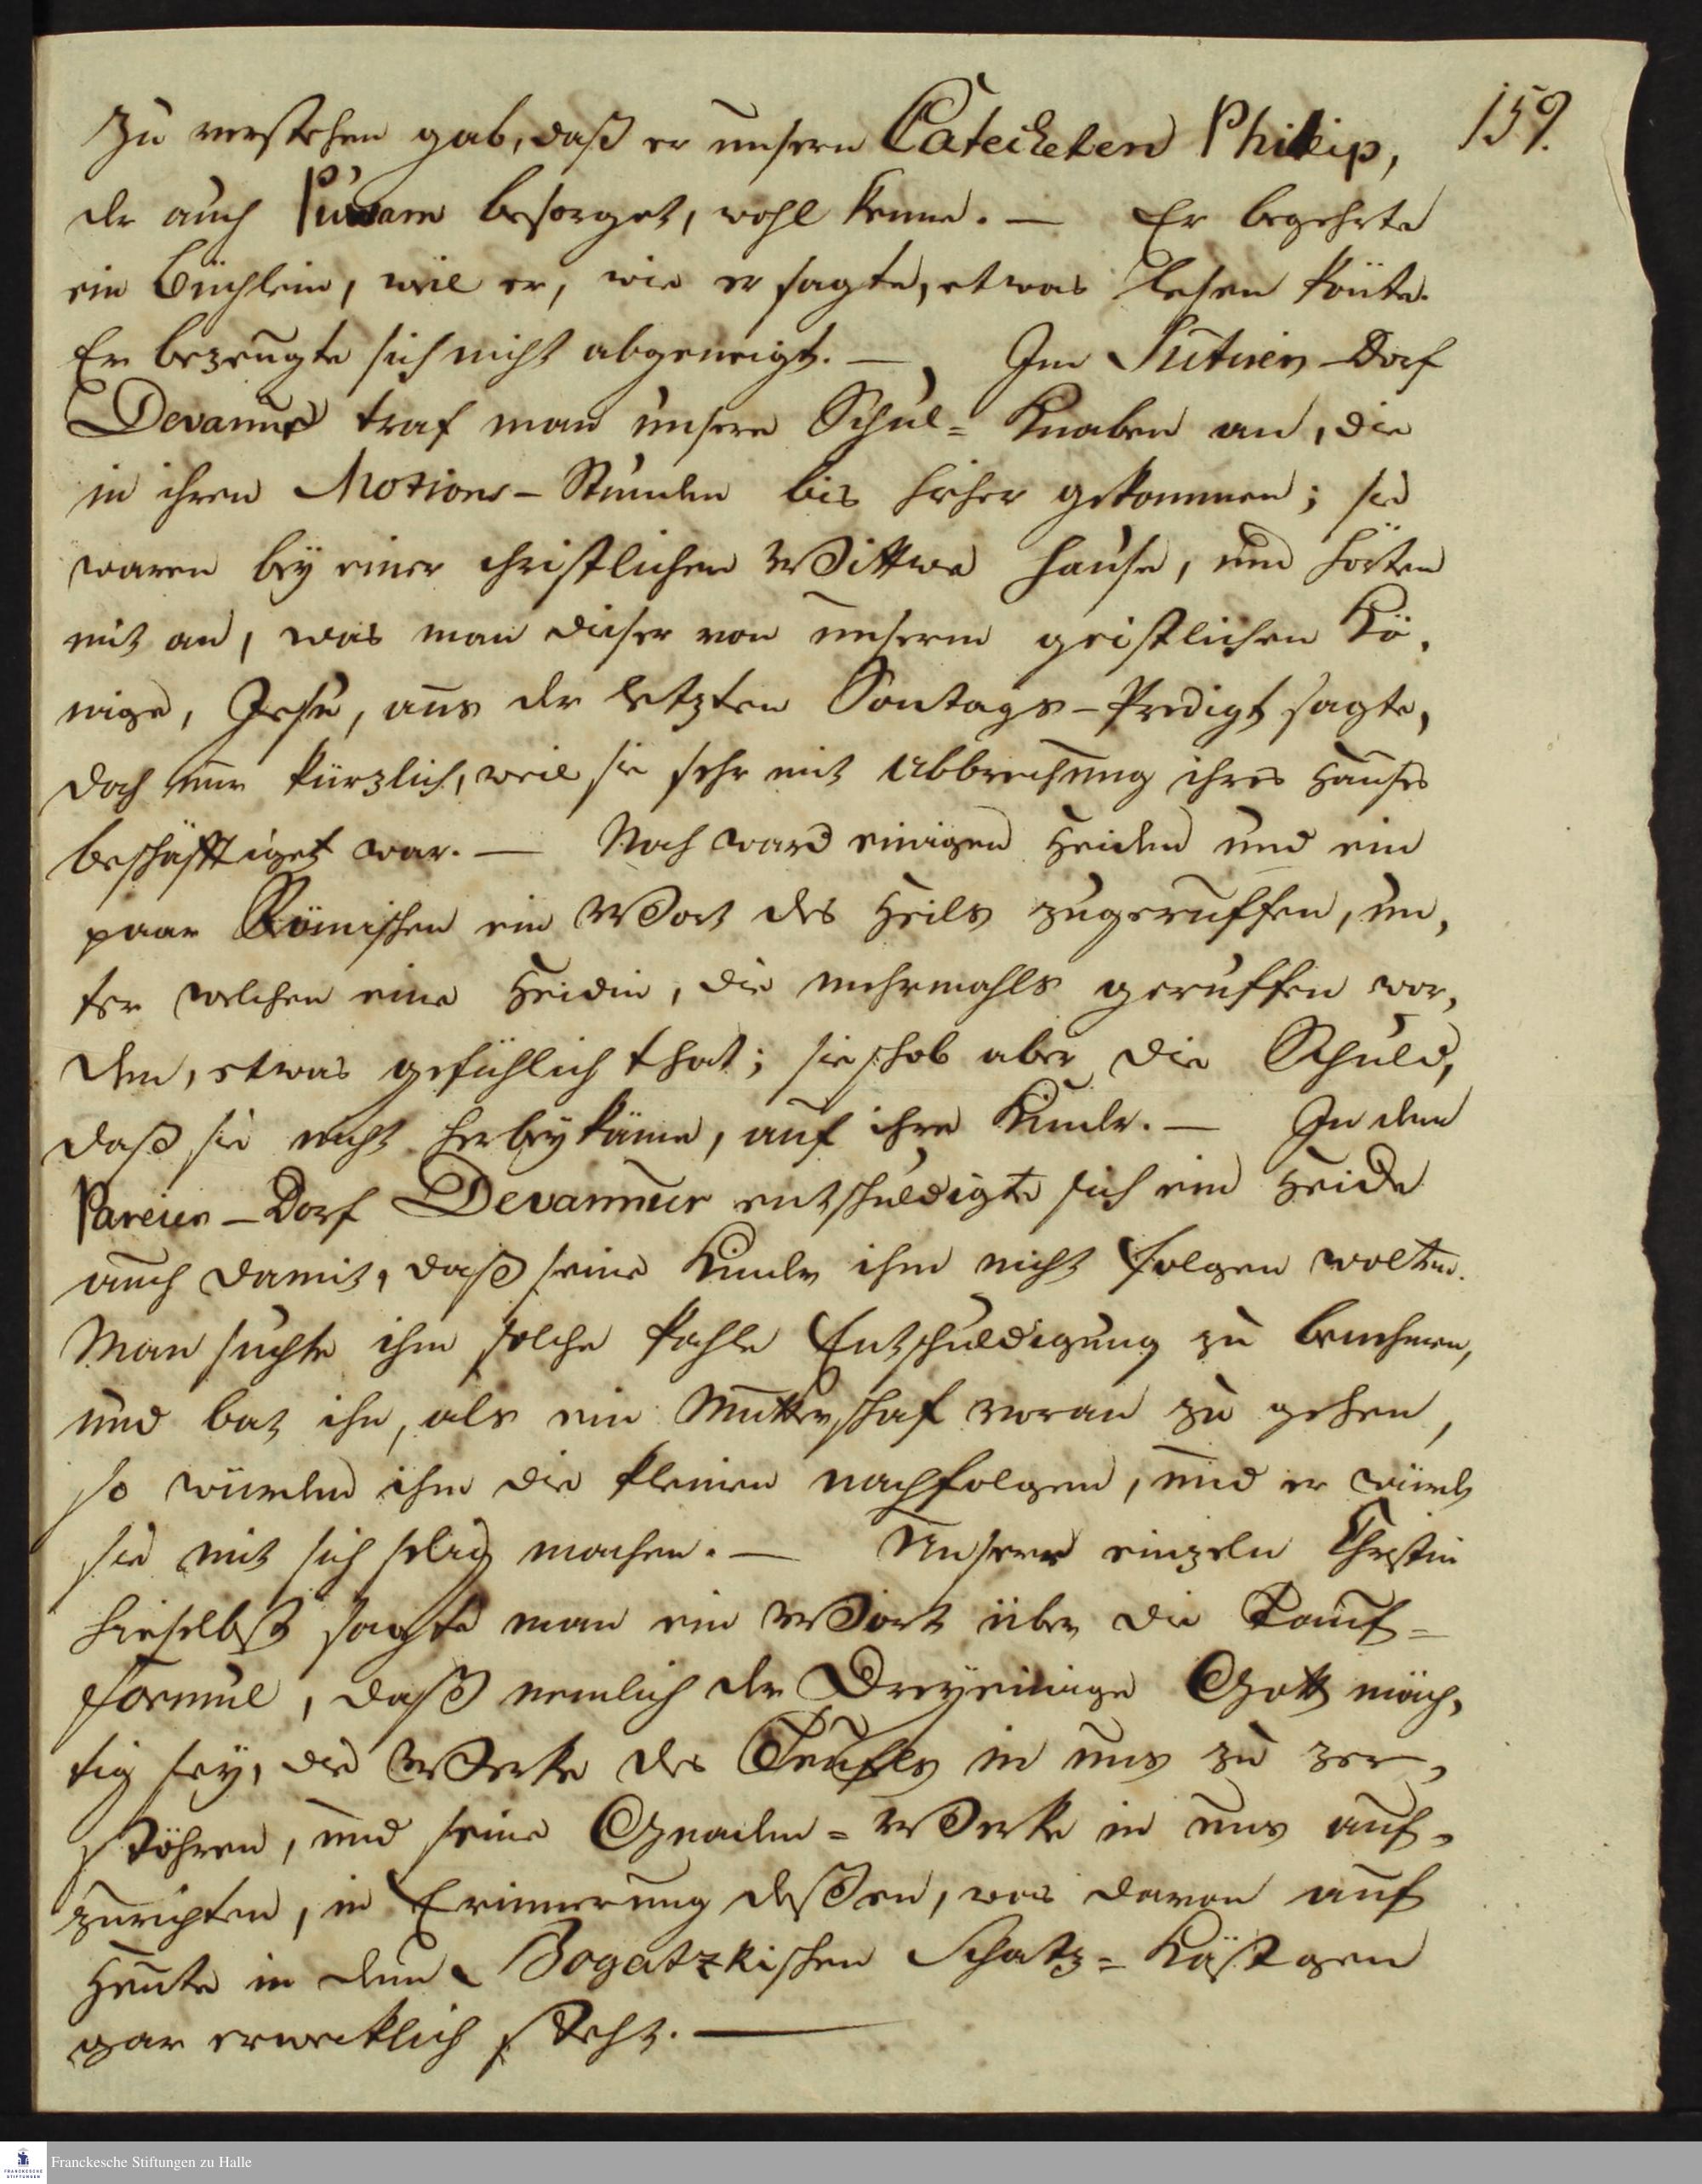 159.
zu verstehen gab, daß er unsern Catecheten Philip,
der auch besorget, wohl kenne. — Er begehrte
ein Büchlein, weil er, wie er sagte, etwas lesen köñte.
Er bezeugte sich nicht abgeneigt. — Im Sutirer-Dorf
Devanur traf man unsere Schul= Knaben an, die
in ihren Motions-Stunden bis hieher gekommen; sie
waren bey einer christlichen Wittwe Hause, und hörten
mit an, was man dieser von unserm geistlichen Kö,
nige, Jesu, aus der letzten Sontags-Predigt sagte,
doch nur kürzlich, weil sie sehr mit Abbrechung ihres Hauses
beschäfftiget war. — Noch ward einigen Heiden und ein
paar Römischen ein Wort des Heils zugeruffen, un,
ter welchen eine Heidin, die mehrmahls geruffen wor,
den, etwas gefühlich that; sie schob aber die Schuld,
daß sie nicht herbeykäme, auf ihre Kinder. — In dem
Pareier-Dorf Devannur entschuldigte sich ein Heide
auch damit, daß seine Kinder ihm nicht folgen wolten.
Man suchte ihm solche kahle Entschuldigung zu benehmen,
und bat ihn, als ein Mutterschaf voran zu gehen,
so würden ihm die kleinen nachfolgen, und er würde
sie mit sich selig machen. — Unserer einzeln Christin
hieselbst sagte man ein Wort über die Tauf=
Formul, daß nemlich der Dreyeinige Gott mäch,
tig sey, die Werke des Teufels in uns zu zer,
stöhren, und seine Gnaden=Werke in uns auf,
zurichten, in Erinnerung deßen, was davon auf
Heute in dem Bogatzkischen Schatz=Kästgen
gar erwecklich steht. —
Franckesche Stiftungen zu Halle